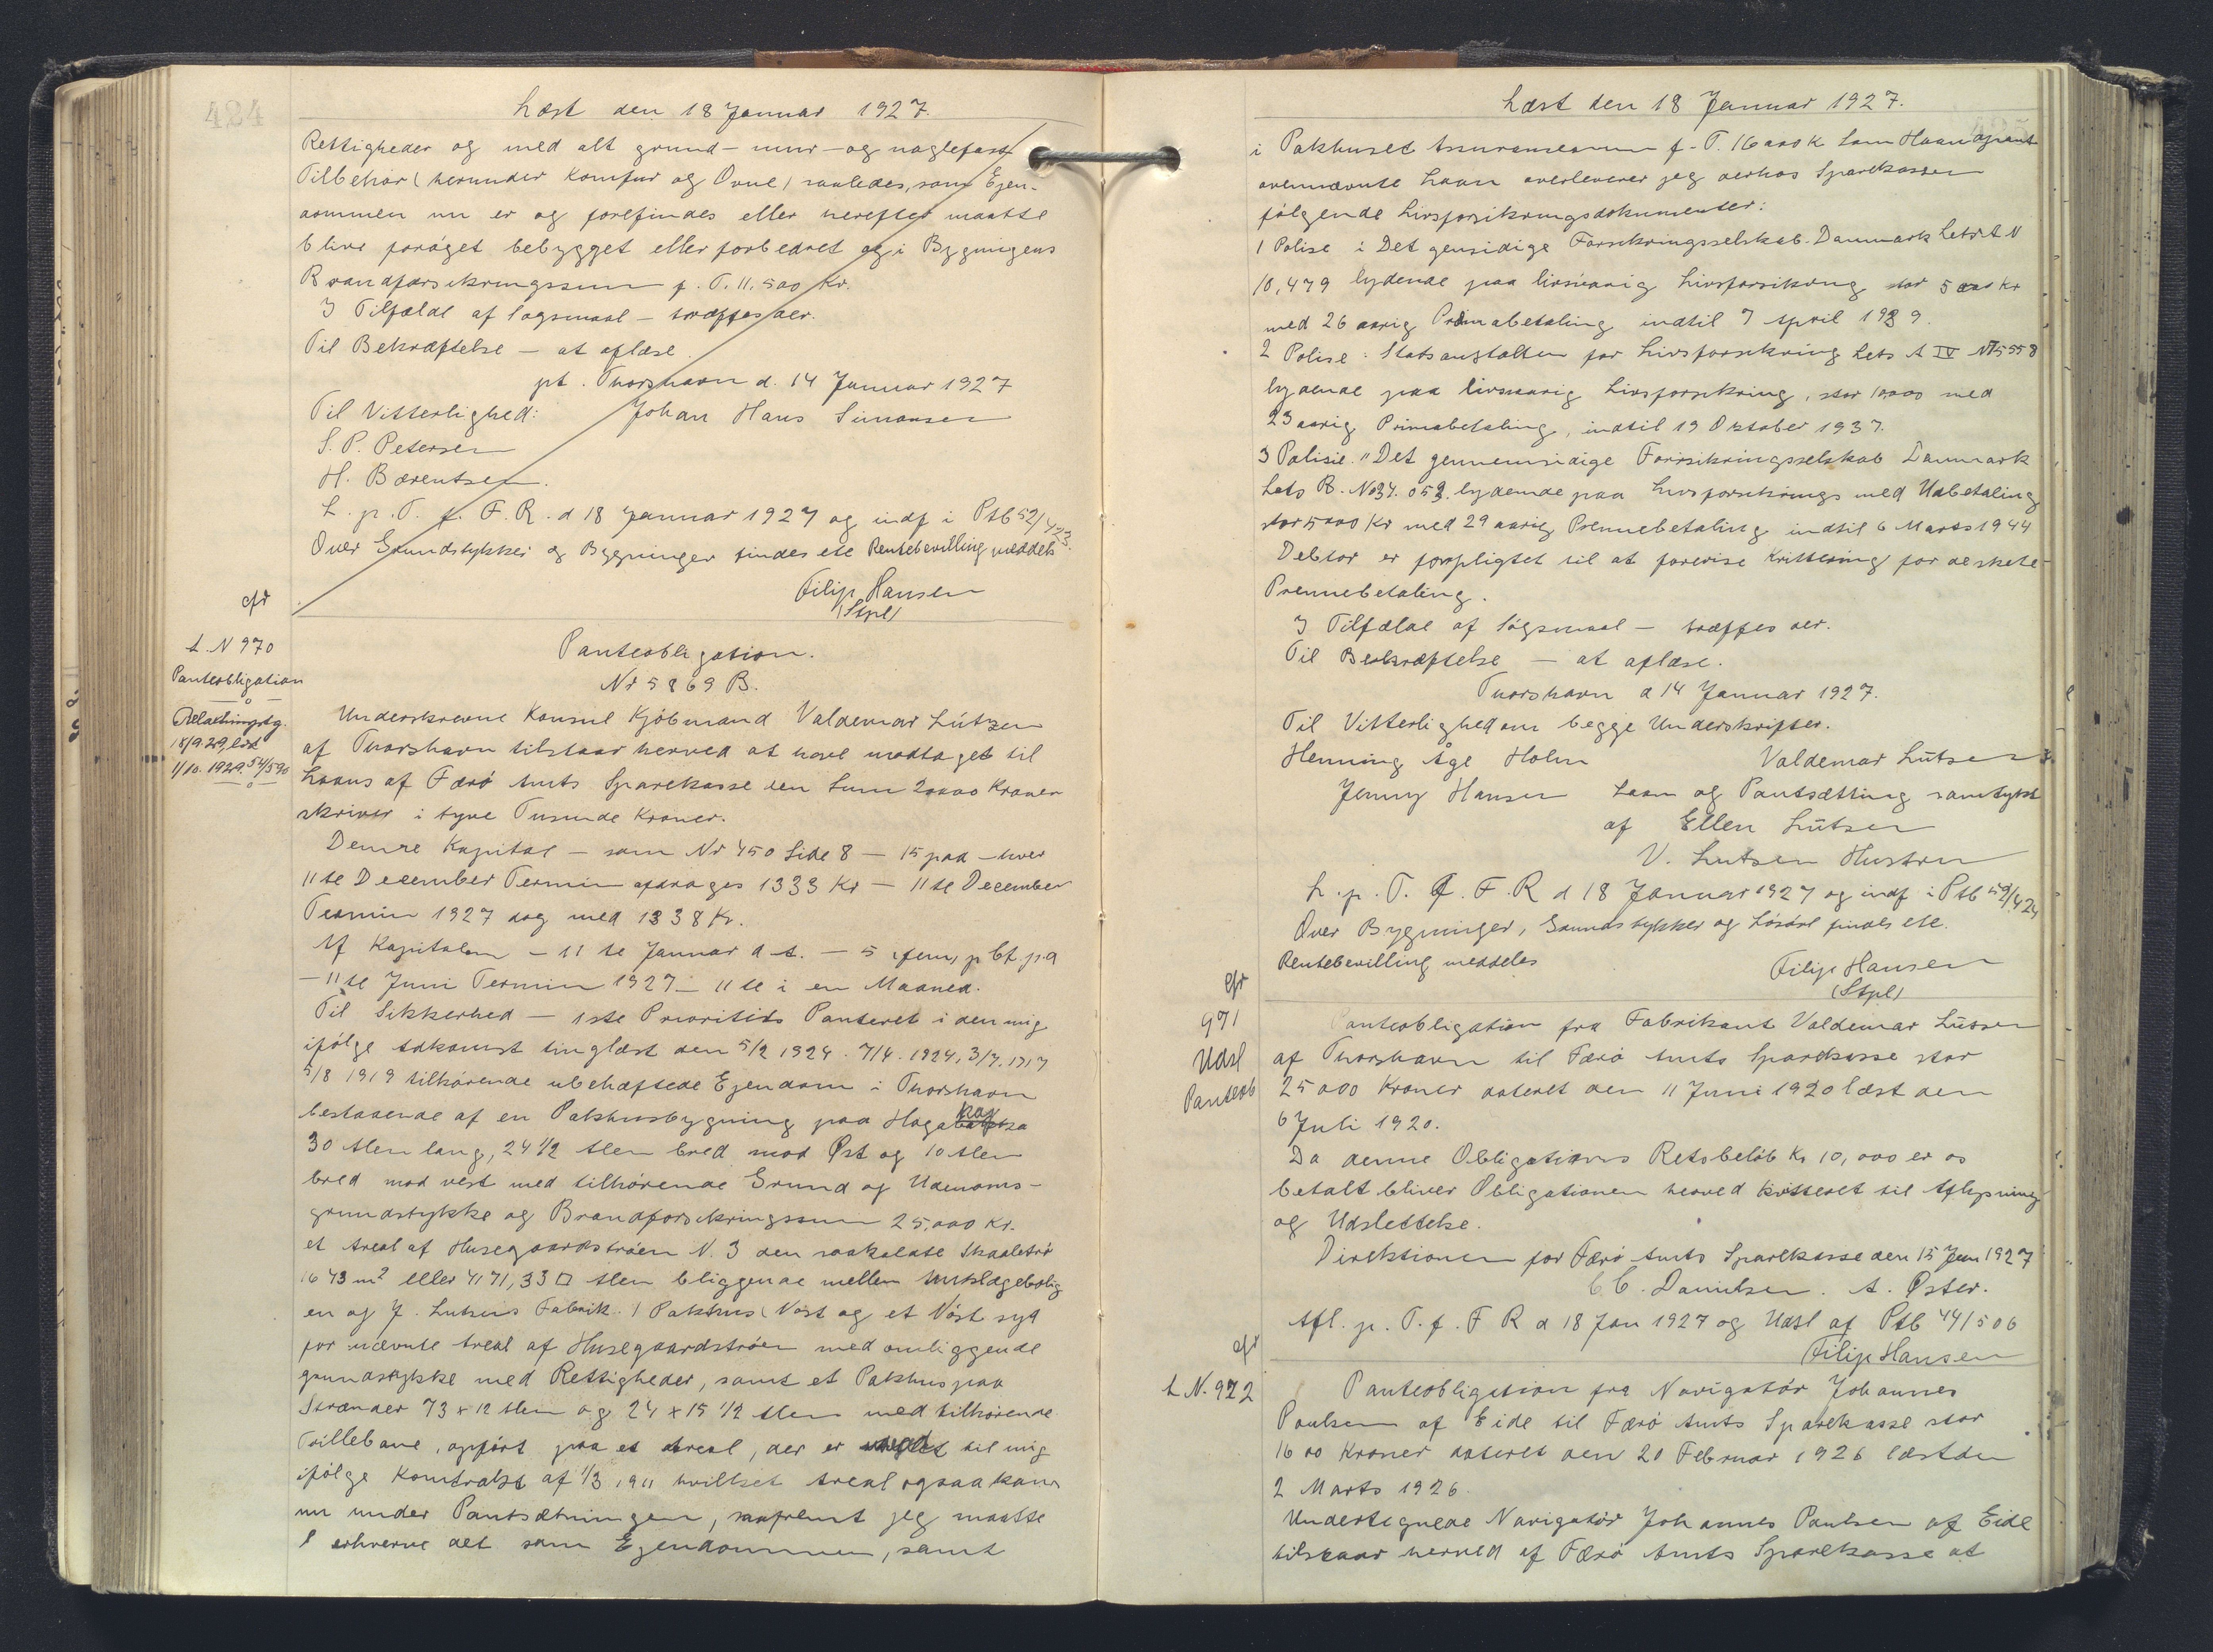 424
Læst den 18 Januar 1927.
Rettigheder og med alt grund- mur- og naglefast
Tilbehør (herunder Komfur og Ovne) saaledes, som Ejen-
dommen nu er og forefindes eller herefter maatte
blive forøget bebygget eller forbedret og i Bygningens
Brandforsikringssum f. T. 11.500 Kr.
I Tilfælde af Søgsmaal - træffes der.
Til Bekræftelse - at aflæse.
pt. Thorshavn d. 14 Januar 1927
Til Vitterlighed: Johan Hans Simonsen
S. P. Petersen
H. Bærentsen.
L. p. T. f. F. R. d 18 Januar 1927 og indf i Ptb 52/423.
Over Grundstykker og Bygninger findes ete Rentebevilling meddels
Filip Hansen
(Stpl)
cfr
L. N 970
Panteobligation
Relaxtingstg.
18/9 29, læst
1/10. 1929. 54/590
Panteobligation.
Nr 5869 B.
Underskrevne Konsul Kjøbmand Valdemar Lützen
af Thorshavn tilstaar herved at have modtaget til
Laans af Færø Amts Sparekasse den Sum 20000 Kroner
skriver i tyve Tusinde Kroner.
Denne Kapital - som Nr 450 Side 8 - 15 paa - hver
11te December Termin afdrages 1333 Kr - 11te December
Termin 1927 dog med 1338 Kr.
Af Kapitalen - 11te Januar d. A. - 5, fem, p Ct. p.a
- 11te Juni Termin 1927 - 11te i en Maaned.
Til Sikkerhed - 1ste Prioritets Panteret i den mig
ifølge Adkomst tinglæst den 5/2 1924. 7/4. 1924, 3/7. 1917
5/8 1919 tilhørende ubehæftede Ejendom i Thorshavn
bestaaende af en Pakhusbygning paa
30 Alen lang, 24 1/2 Alen bred mod Øst og 10 Alen
bred mod vest med tilhørende Grund og Udenoms-
grundstykke og Brandforsikringssum 25.000 Kr.
et Areal af Husegaardstrøen N. 3 den saakaldte Skaaletrø
1643 m² eller 4171,33 □ Alen bliggende mellem Amtslægebolig
en og J. Lutzens Fabrik. 1 Pakhus (Nøst og et Nøst syd
for nævnte Areal af Husegaardstrøen med omliggende
grundstykke med Rettigheder, samt et Pakhus paa
Strænder 73 x 12 Alen og 24 x 15 1/2 Alen med tilhørende
Trillebane, opført paa et Areal, der er til mig
ifølge Kontrakt af 1/3 1911 hvilket Areal ogsaa kan
nu under Pantsætningen, saafremt jeg maatte
erhverve det som Ejendommen, samt
Læst den 18 Januar 1927.
i Pakhuset Assurancesum f. T. 16000 K Som Haandpant
ovennævnte Laan overleverer jeg derhos Sparekassen
følgende Livsforsikringsdokumenter:
1 Polise i Det gensidige Forsikringsselskab Danmark Letr A N
10,479 lydende paa livsvarig Livsforsikring stor 5000 Kr
med 26 aarig Præmiabetaling indtil 7 April 1939.
2 Polise: Statsanstalten for Livsforsikring Lets A IV N 75558
lydende paa livsvarig Livsforsikring, stor 10000 med
23 aarig Primabetaling, indtil 19 Oktober 1937.
3 Polisie. "Det gennemsidige Forrsikringsselskab Danmark
Lets B. No 34. 052. lydende paa Livsforsikrings med Udbetaling
stor 5000 Kr med 29 aarig Premiebetaling indtil 6 Marts 1944
Debtor er forpligtet til at forevise Kvittering for de skete
Premiebetaling.
I Tilfælde af Søgsmaal - træffes der.
Til Berkræftelse - at aflæse.
Thorshavn d 14 Januar 1927.
Til Vitterlighed om begge Underskrifter.
Henning Åge Holm Valdemar Lützen
Jenny Hansen Laan og Pantsætting samtykt
af Ellen Lützen
V. Lutzen Hustru
L. p. T. f. F. R d 18 Januar 1927 og indf i Ptb 52/424
Over Bygninger, Grundstykker og Løsøre findes ete.
Rentebevilling meddeles
Filip Hansen
(Stpl)
cfr
971
Udsl
Panteob
Panteobligation fra Fabrikant Valdemar Lützen
af Thorshavn til Færø Amts Sparekasse stor
25000 Kroner dateret den 11 Juni 1920 læst den
6 Juli 1920.
Da denne Obligations Retsbeløb Kr 10,000 er os
betalt bliver Obligationen herved kvitteret til Aflysning
og Udslettelse.
Direktionen for Færø Amts Sparekasse den 15 Jan 1927
C. C. Danielsen. A. Øster.
Afl. p. T. f. F R d 18 Jan 1927 og Udsl af Ptb 44/506
Filip Hansen
cfr
L N. 972
Panteobligation fra Navigatør Johannes
Poulsen af Eide til Færø Amts Sparekasse stor
1600 Kroner dateret den 20 Februar 1926 læst den
2 Marts 1926
Undertegnede Navigatør Johannes Paulsen af Eide
tilstaar herved af Færø Amts Sparekasse at